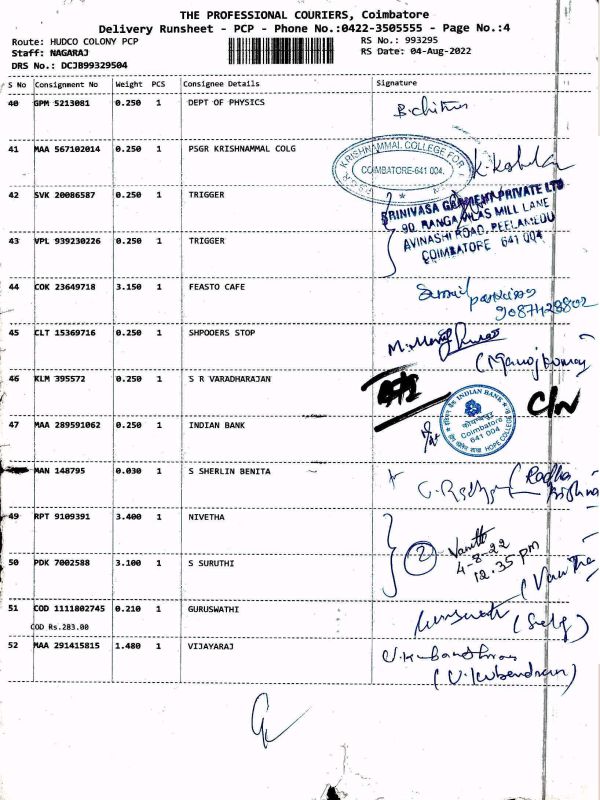 THE PROFESSIONAL COURIERS, Coimbatore
Delivery Runsheet - PCP - Phone No.:0422-3505555 - Page No.:4
Route: HUDCO COLONY PCP
RS No.: 993295
Staff: NAGARAJ
RS Date: 04-Aug-2022
DRS No.: DCJB99329504
S No Consignment No Weight PCS Consignee Details Signature
40 GPM 5213081 0.250 1 DEPT OF PHYSICS
41 MAA 567102014 0.250 1 PSGR KRISHNAMMAL COLG
KRISHNAMMAL COLLEGE FOR
COIMBATORE-641 004.
42 SVK 20086587 0.250 1 TRIGGER
SRINIVASA GARMENT PRIVATE LTD
90, RANGA VILAS MILL LANE
43 VPL 939230226 0.250 1 TRIGGER
AVINASHI ROAD, PEELAMEDU
COIMBATORE 641 004
44 COK 23649718 3.150 1 FEASTO CAFE
9087428802
45 CLT 15369716 0.250 1 SHPOOERS STOP
46 KLM 395572 0.250 1 S R VARADHARAJAN
C/N
47 MAA 289591062 0.250 1 INDIAN BANK
INDIAN BANK
Coimbatore
641 004
HOPE COLLEGE
MAN 148795 0.030 1 S SHERLIN BENITA
(Radha
Krishna
49 RPT 9109391 3.400 1 NIVETHA
2
4-8-22
12.35 pm
50 PDK 7002588 3.100 1 S SURUTHI
51 COD 1111802745 0.210 1 GURUSWATHI
COD Rs.283.00
(Self)
52 MAA 291415815 1.480 1 VIJAYARAJ
(U.Kubendran)